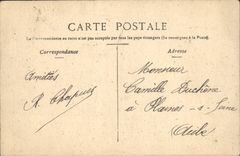 CARTE POSTALE
La Correspondance au recto n'est pas acceptée par tous les pays étrangers (Se renseigner à la Poste)
Correspondance
Adresse
Amitiés
Monsieur
Camille Duchêne
à Plaines-s-Seine
Aube